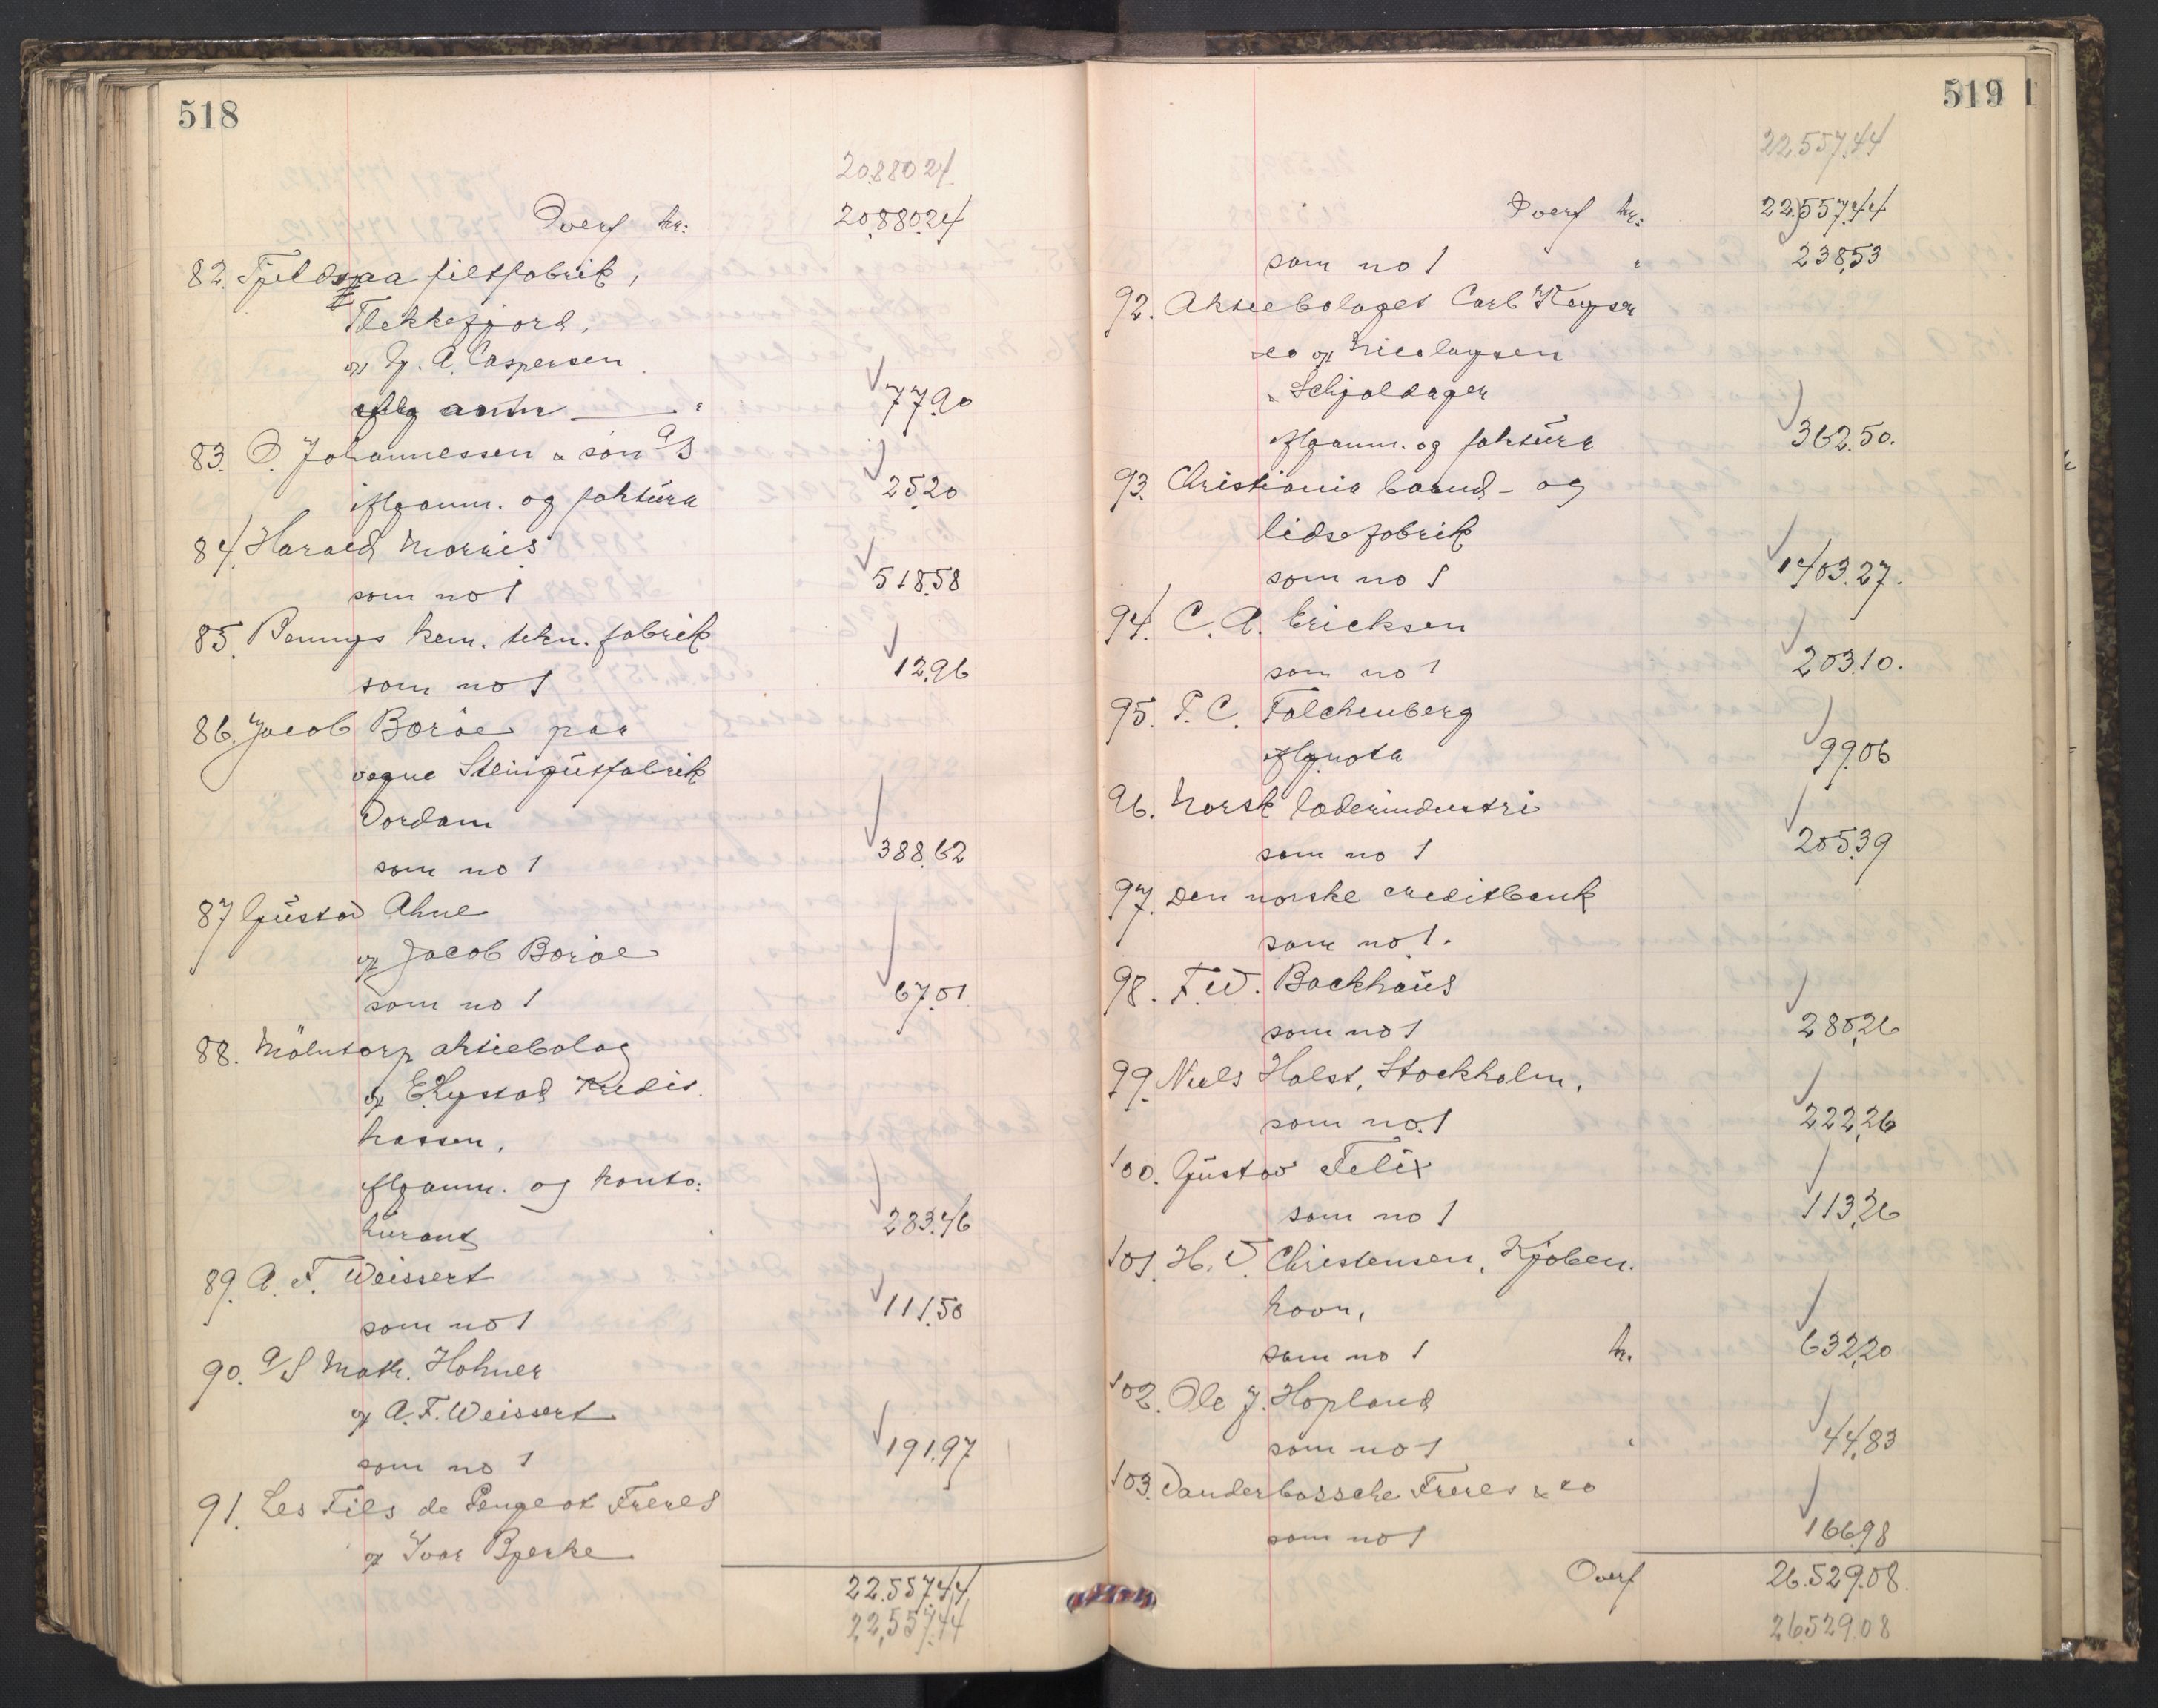 518
20.880 24
Overf kr: 20.880.24
82. Fjeldsaa filtfabrik,
Flekkefjord,
v/ A. Caspersen
iflg anm 77.90
83. O. Johannessen & søn A/S
iflg anm. og faktura 25.20
84. Harald Morris
som no 1 518.58
85. Bennys kem. tekn. fabrik
som no 1 12.96
86. Jacob Boröe paa
vegne Steingutfabrik
Dordam
som no 1 388.62
87 Gustav Ahne
v/ Jacob Boröe
som no 1 67.01
88. Mölntorp aktiebolag
v/ Kredit
kassen,
iflg anm. og konto:
kurant 283.46
89. A. F. Weissert
som no 1 111.50
90. A/S Math. Hohner
v/ A. F. Weissert
som no 1 191.97
91. Les Fils de Peugeot Freres
v/ Ivar Bjerke
22.557.44
22,557.44
519
22.557.44
Overf kr: 22.557.44
som no 1 238.53
92. Aktiebolaget Carl Kayser
co v/ Nicolaysen
& Schjoldager
iflg anm. og faktura 362.50.
93. Christiania baand- og
lidsefabrik
som no 1 1403.27.
94. C. A. Ericksen
som no 1 203.10.
95. P. C. Falchenberg
iflg nota 99.06
96. Norsk læderindustri
som no 1 205.39
97. Den norske creditbank
som no 1.
98. F. W. Backhaus
som no 1 280,26
99. Niels Holst, Stockholm,
som no. 1 222,26
100. Gustav Felix
som no 1 113,26
101. H. V. Christensen, Kjøben.
havn,
som no 1 kr. 632,20
102. Ole J. Hopland
som no 1 44,83
103. Vanderbossche Freres & co
som no 1 166.98
Overf 26.529.08.
26.529.08